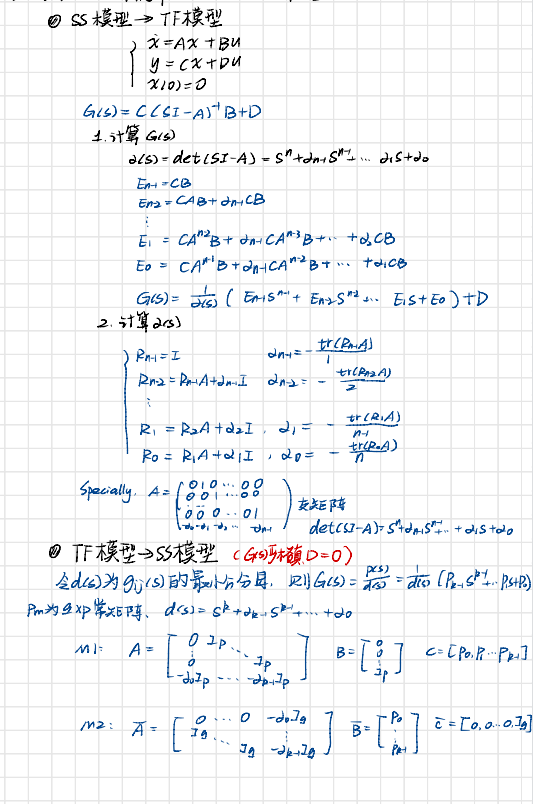 ① SS模型 → TF模型
{ ẋ = Ax + Bu
y = Cx + Du
x(0) = 0
G(s) = C(sI-A)⁻¹B + D
1. 计算 G(s)
α(s) = det(sI-A) = sⁿ + αₙ₋₁sⁿ⁻¹ + ... α₁s + α₀
Eₙ₋₁ = CB
Eₙ₋₂ = CAB + αₙ₋₁CB
⋮
E₁ = CAⁿ⁻²B + αₙ₋₁CAⁿ⁻³B + ... + α₂CB
E₀ = CAⁿ⁻¹B + αₙ₋₁CAⁿ⁻²B + ... + α₁CB
G(s) = 1/α(s) ( Eₙ₋₁sⁿ⁻¹ + Eₙ₋₂sⁿ⁻² + ... E₁s + E₀ ) + D
2. 计算 α(s)
{ Rₙ₋₁ = I αₙ₋₁ = - tr(Rₙ₋₁A)/1
Rₙ₋₂ = Rₙ₋₁A + αₙ₋₁I αₙ₋₂ = - tr(Rₙ₋₂A)/2
⋮
R₁ = R₂A + α₂I , α₁ = - tr(R₁A)/n-1
R₀ = R₁A + α₁I , α₀ = - tr(R₀A)/n
Specially, A = ( 0 1 0 ... 0 0
0 0 1 ... 0 0
⋮
0 0 0 ... 0 1
-α₀ -α₁ -α₂ ... -αₙ₋₁ ) 友矩阵
det(sI-A) = sⁿ + αₙ₋₁sⁿ⁻¹ + ... + α₁s + α₀
② TF模型 → SS模型 (G(s)严格真 D=0)
令d(s)为gᵢⱼ(s)的最小公分母, 则G(s) = P(s)/d(s) = 1/d(s) [Pₖ₋₁sᵏ⁻¹ + ... P₁s + P₀]
Pm为q×p常矩阵, d(s) = sᵏ + αₖ₋₁sᵏ⁻¹ + ... + α₀
M1: A = [ 0 Ip ⋱
0 ⋱ Ip
-α₀Ip ... -αₖ₋₁Ip ] B = [ 0 0 ⋮ Ip ] C = [P₀, P₁ ... Pₖ₋₁]
M2: Ā = [ 0 ... 0 -α₀Iq
Iq ⋱ ⋮
Iq -αₖ₋₁Iq ] B̄ = [ P₀ ⋮ Pₖ₋₁ ] C̄ = [0, 0 ... 0, Iq]